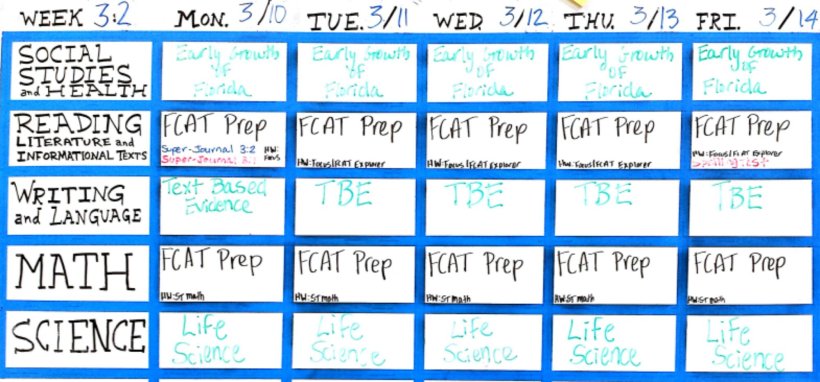 WEEK 3:2 MON. 3/10 TUE. 3/11 WED. 3/12 THU. 3/13 FRI. 3/14
SOCIAL STUDIES and HEALTH
Early Growth of Florida
Early Growth of Florida
Early Growth of Florida
Early Growth of Florida
Early Growth of Florida
READING LITERATURE and INFORMATIONAL TEXTS
FCAT Prep
Super-Journal 3:2
Super-Journal 3:1
HW: Focus
FCAT Prep
HW: Focus/FCAT Explorer
FCAT Prep
HW: Focus/FCAT Explorer
FCAT Prep
HW: Focus/FCAT Explorer
FCAT Prep
HW: Focus/FCAT Explorer
WRITING and LANGUAGE
Text Based Evidence
TBE
TBE
TBE
TBE
MATH
FCAT Prep
HW: ST math
FCAT Prep
HW: ST math
FCAT Prep
HW: ST math
FCAT Prep
HW: ST math
FCAT Prep
HW: ST math
SCIENCE
Life Science
Life Science
Life Science
Life Science
Life Science